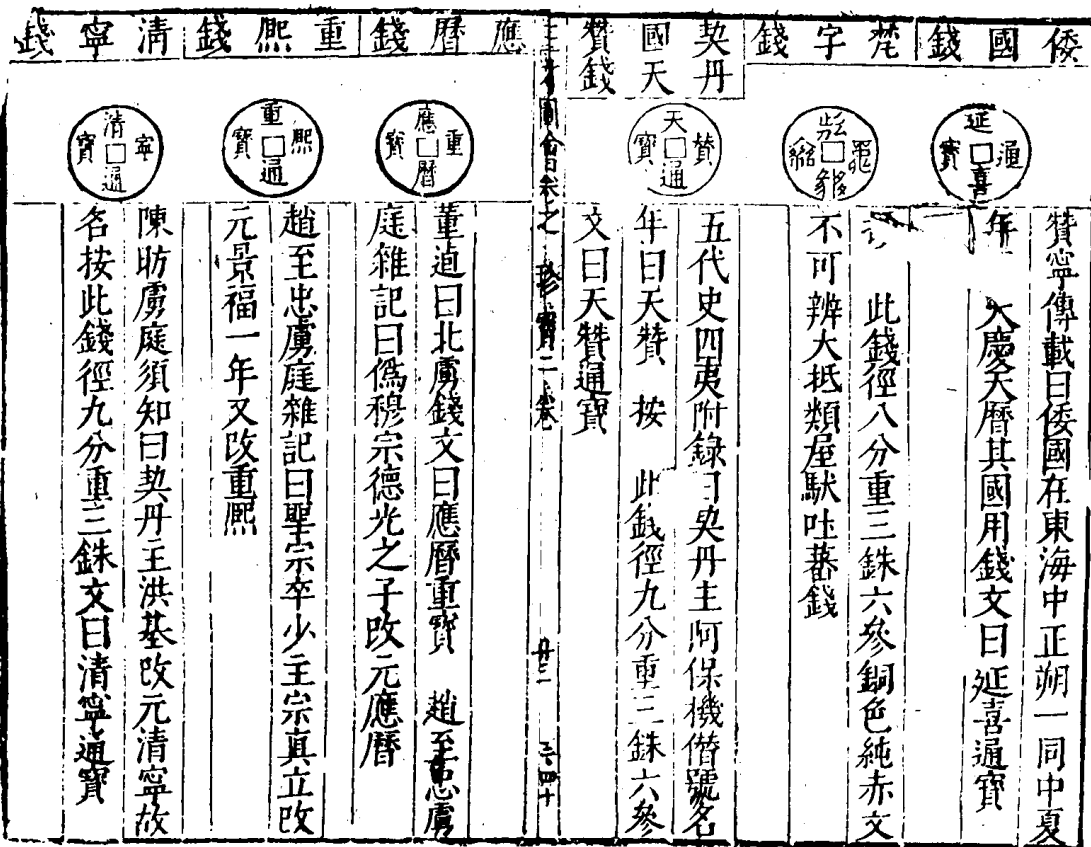 倭國錢
延喜通寶
贊寧傳載曰倭國在東海中正朔一同中夏
年 大慶天曆其國用錢文曰延喜通寶
梵字錢
此錢徑八分重三銖六參銅色純赤文
不可辨大抵類屋馱吐蕃錢
契丹國天贊錢
天贊通寶
五代史四夷附錄曰契丹主阿保機僭號名
年曰天贊 按 此錢徑九分重三銖六參
文曰天贊通寶
珍寶二卷
應曆錢
應曆重寶
董逌曰北虜錢文曰應曆重寶 趙至忠虜
庭雜記曰偽穆宗德光之子改元應曆
重熙錢
重熙通寶
趙至忠虜庭雜記曰聖宗卒少主宗真立改
元景福一年又改重熙
清寧錢
清寧通寶
陳昉虜庭須知曰契丹主洪基改元清寧故
名按此錢徑九分重三銖文曰清寧通寶